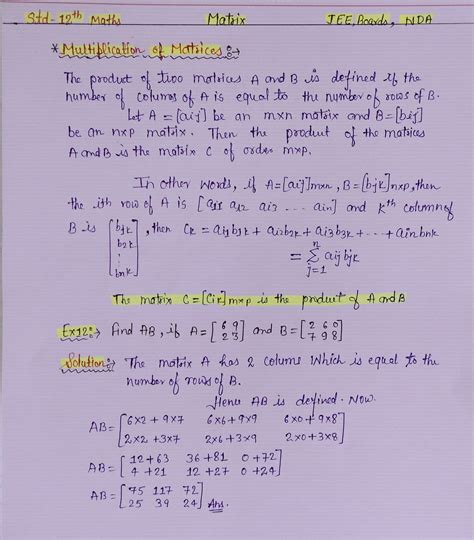 Std-12th Maths Matrix JEE, Boards, NDA
* Multiplication of Matrices :→
The product of two matrices A and B is defined if the
number of colums of A is equal to the number of rows of B.
Let A = [aij] be an mxn matrix and B=[bij]
be an nxp matrix. Then the product of the matrices
A and B is the matrix C of order mxp.
In other words, if A=[aij]mxn, B=[bjk]nxp, then
the ith row of A is [ai1 ai2 ai3 ---- ain] and kth column of
B is [b1k b2k ⋮ bnk], then Cik = ai1b1k + ai2b2k + ai3b3k + --- + ainbnk
= n∑j=1 aij bjk
The matrix C=[Cik]mxp is the product of A and B
Ex12:→ And AB, if A = [6 9 2 3] and B = [2 6 0 7 9 8]
Solution:→ The matrix A has 2 colums Which is equal to the
number of rows of B.
Hence AB is defined. Now.
AB = [6x2 + 9x7 6x6 + 9x9 6x0 + 9x8
2x2 + 3x7 2x6 + 3x9 2x0 + 3x8]
AB = [12+63 36+81 0+72
4+21 12+27 0+24]
AB = [75 117 72
25 39 24] Ans.